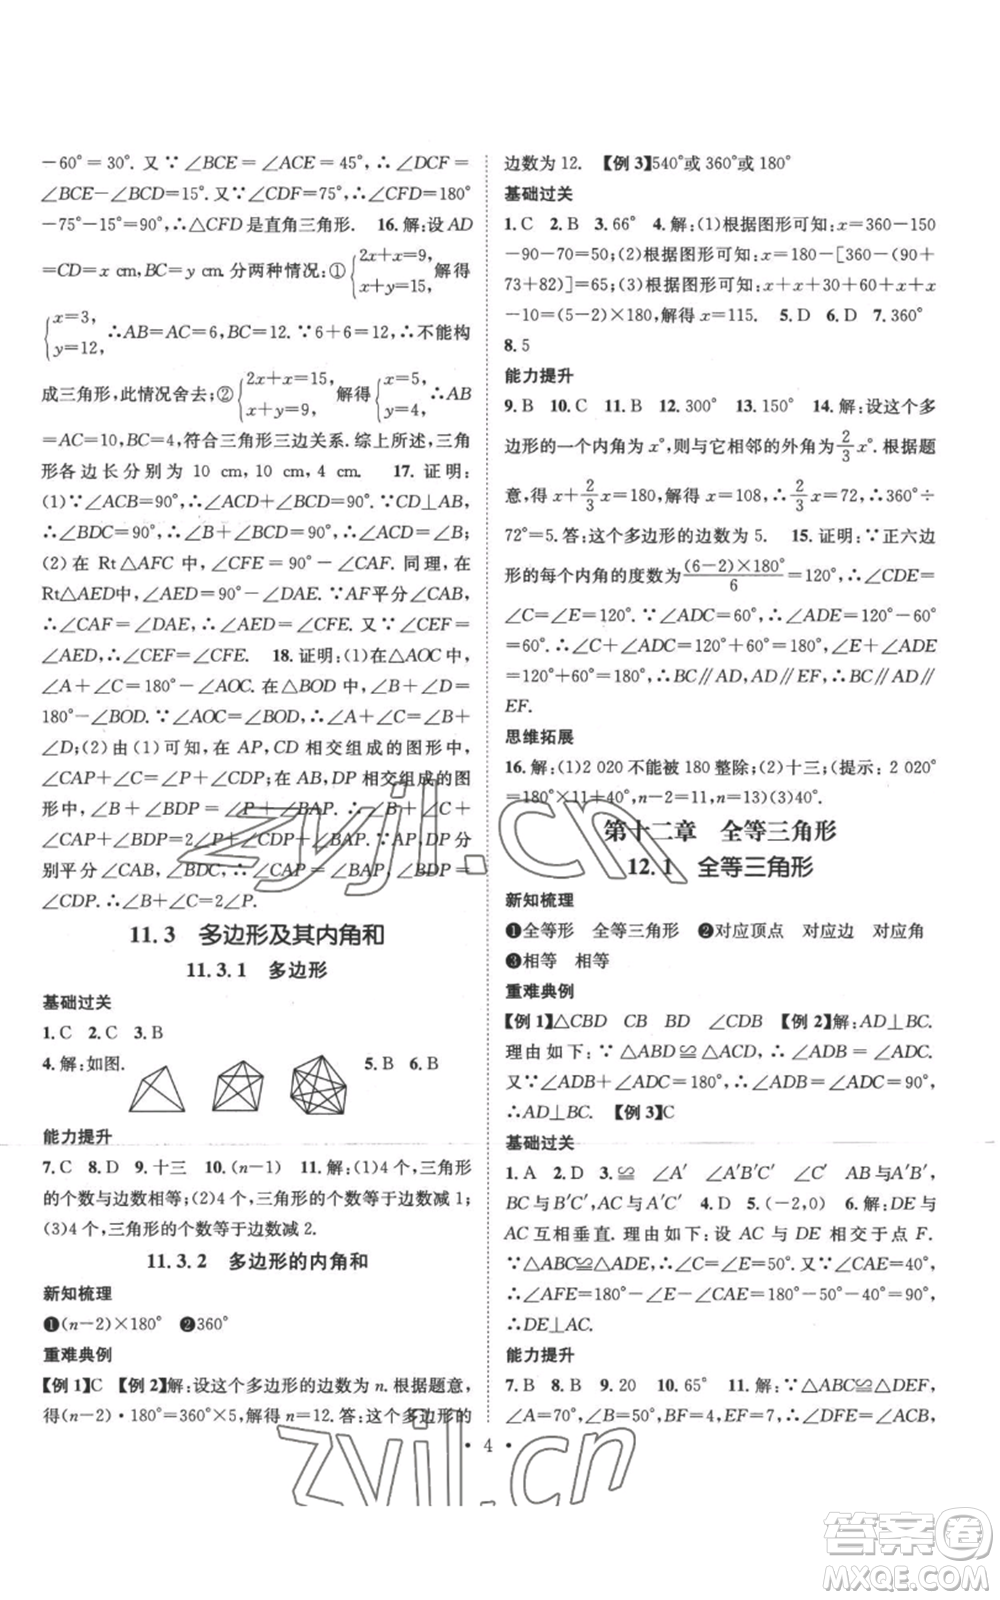 -60°=30°. 又∵∠BCE=∠ACE=45°,∴∠DCF=
∠BCE-∠BCD=15°. 又∵∠CDF=75°,∴∠CFD=180°
-75°-15°=90°,∴△CFD是直角三角形. 16.解:设AD
=CD=x cm,BC=y cm.分两种情况:①{2x+x=9, x+y=15, 解得
{x=3, y=12, ∴AB=AC=6,BC=12.∵6+6=12,∴不能构
成三角形,此情况舍去;②{2x+x=15, x+y=9, 解得{x=5, y=4, ∴AB
=AC=10,BC=4,符合三角形三边关系.综上所述,三角
形各边长分别为 10 cm,10 cm,4 cm. 17. 证明:
(1)∵∠ACB=90°,∴∠ACD+∠BCD=90°.∵CD⊥AB,
∴∠BDC=90°,∴∠B+∠BCD=90°,∴∠ACD=∠B;
(2)在 Rt△AFC 中,∠CFE=90°-∠CAF. 同理,在
Rt△AED中,∠AED=90°-∠DAE.∵AF平分∠CAB,
∴∠CAF=∠DAE,∴∠AED=∠CFE. 又∵∠CEF=
∠AED,∴∠CEF=∠CFE. 18.证明:(1)在△AOC中,
∠A+∠C=180°-∠AOC.在△BOD中,∠B+∠D=
180°-∠BOD.∵∠AOC=∠BOD,∴∠A+∠C=∠B+
∠D;(2)由(1)可知,在 AP,CD 相交组成的图形中,
∠CAP+∠C=∠CDP+∠P.在AB,DP相交组成的图
形中,∠B+∠BDP=∠P+∠BAP.∴∠C+∠CAP+
∠B+∠BDP=2∠P+∠CDP+∠BAP.∵AP,DP分
别平分∠CAB,∠BDC,∴∠CAP=∠BAP,∠BDP=
∠CDP.∴∠C+∠B=2∠P.
11.3 多边形及其内角和
11.3.1 多边形
基础过关
1.C 2.C 3.B
4.解:如图. 5.B 6.B
能力提升
7.C 8.D 9.十三 10.(n-1) 11.解:(1)4,三角形
的个数与边数相等;(2)4,三角形的个数等于边数减1;
(3)4,三角形的个数等于边数减2.
11.3.2 多边形的内角和
新知梳理
❶(n-2)×180° ❷360°
重难典例
【例1】C 【例2】解:设这个多边形的边数为n.根据题意,
得(n-2)·180°=360°×5,解得n=12.答:这个多边形的
边数为12. 【例3】540°或360°或180°
基础过关
1.C 2.B 3.66° 4.解:(1)根据图形可知:x=360-150
-90-70=50;(2)根据图形可知:x=180-[360-(90+
73+82)]=65;(3)根据图形可知:x+x+30+60+x+x
-10=(5-2)×180,解得x=115. 5.D 6.D 7.360°
8.5
能力提升
9.B 10.C 11.B 12.300° 13.150° 14.解:设这个多
边形的一个内角为x°,则与它相邻的外角为2/3x°.根据题
意,得x+2/3x=180,解得x=108,∴2/3x=72,∴360°÷
72°=5.答:这个多边形的边数为5. 15.证明:∵正六边
形的每个内角的度数为(6-2)×180°/6=120°,∴∠CDE=
∠C=∠E=120°.∵∠ADC=60°,∴∠ADE=120°-60°
=60°.∴∠C+∠ADC=120°+60°=180°,∠E+∠ADE
=120°+60°=180°.∴BC∥AD,AD∥EF,∴BC∥AD∥
EF.
思维拓展
16.解:(1)2 020不能被180整除;(2)十三;(提示: 2 020°
=180°×11+40°,n-2=11,n=13)(3)40°.
第十二章 全等三角形
12.1 全等三角形
新知梳理
❶全等形 全等三角形 ❷对应顶点 对应边 对应角
❸相等 相等
重难典例
【例1】△CBD CB BD ∠CDB 【例2】解:AD⊥BC.
理由如下:∵△ABD≌△ACD,∴∠ADB=∠ADC.
又∵∠ADB+∠ADC=180°,∴∠ADB=∠ADC=90°,
∴AD⊥BC. 【例3】C
基础过关
1.A 2.D 3.≌ ∠A′ ∠A′B′C′ ∠C′ AB与A′B′,
BC与B′C′,AC与A′C′ 4.D 5.(-2,0) 6.解:DE与
AC互相垂直.理由如下:设 AC 与 DE 相交于点 F.
∵△ABC≌△ADE,∴∠C=∠E=50°.∵∠CAE=40°,
∴∠AFE=180°-∠E-∠CAE=180°-50°-40°=90°,
∴DE⊥AC.
能力提升
7.B 8.B 9.20 10.65° 11.解:∵△ABC≌△DEF,
∠A=70°,∠B=50°,BF=4,EF=7,∴∠DFE=∠ACB,
· 4 ·
zyjl.cn
zyjl.cn
答案圈
MXQE.COM